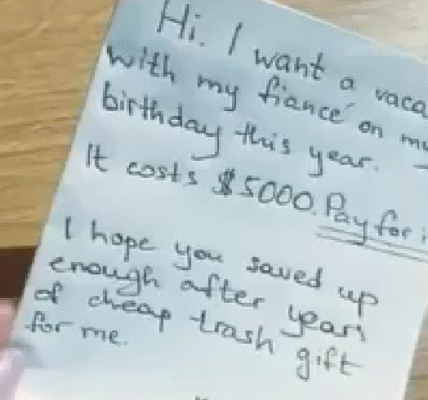 Hi. I want a vaca
with my fiancé on my
birthday this year.
It costs $5000. Pay for i
I hope you saved up
enough after years
of cheap trash gift
for me.